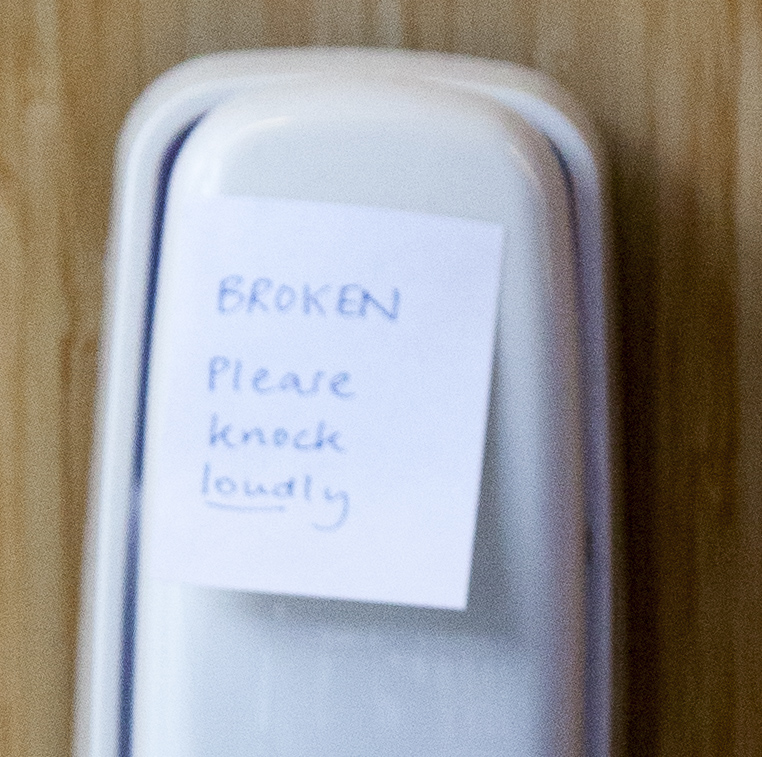 BROKEN
Please
knock
loudly